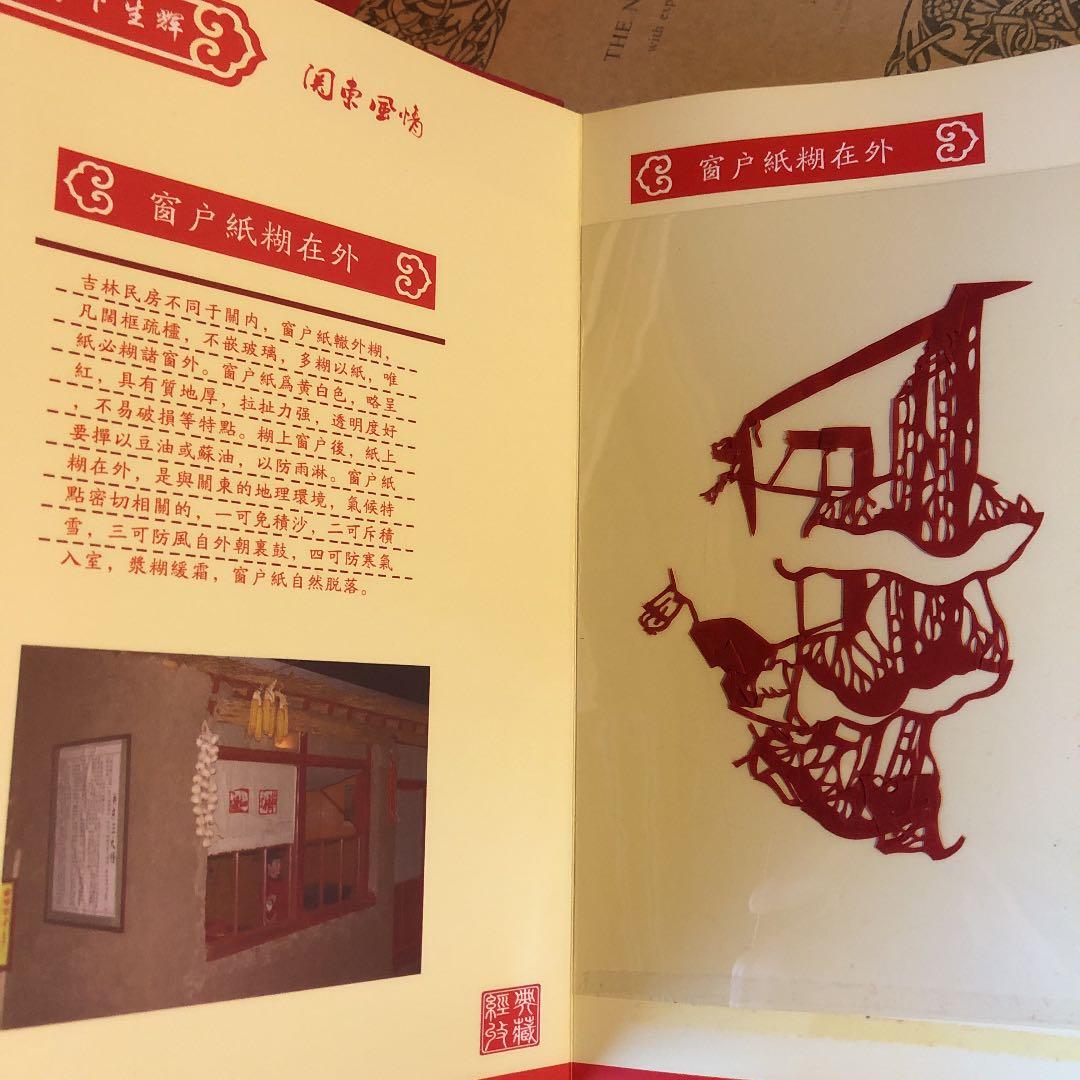 生輝
関東風情
窗户紙糊在外
吉林民房不同于關内，窗户紙轍外糊，
凡闊框疏櫺，不嵌玻璃，多糊以紙，唯
紙必糊諸窗外。窗户紙爲黄白色，略呈
紅，具有質地厚，拉扯力强，透明度好
，不易破損等特點。糊上窗户後，紙上
要撣以豆油或蘇油，以防雨淋。窗户紙
糊在外，是與關東的地理環境，氣候特
點密切相關的，一可免積沙，二可斥積
雪，三可防風自外朝裏鼓，四可防寒氣
入室，漿糊緩霜，窗户紙自然脱落。
典藏
經
窗户紙糊在外
THE
with